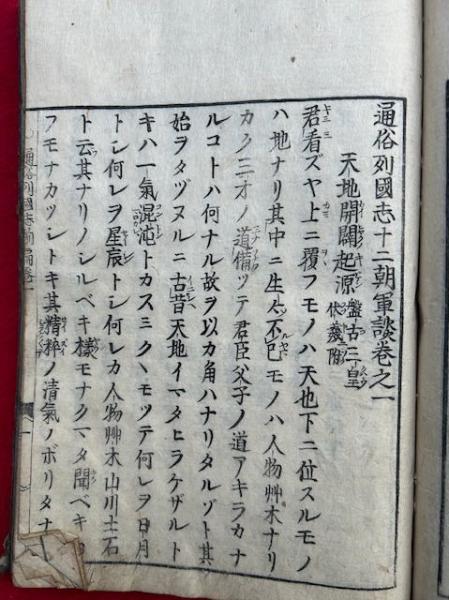 通俗列國志十二朝軍談卷之一
天地開闢起源 盤古三皇
伏羲附
君看ズヤ上ニ覆フモノハ天也下ニ位スルモノ
ハ地ナリ其中ニ生〆不已モノハ人物艸木ナリ
カク三才ノ道備ツテ君臣父子ノ道アキラカナ
ルコトハ何ナル故ヲ以カ角ハナリタルゾト其
始ヲタヅヌルニ古昔天地イマダヒラケザルト
キハ一氣混沌トカスミクヽモツテ何レヲ日月
トシ何レヲ星辰トシ何レカ人物艸木山川土石
ト云其ナリノシルベキ樣モナクマタ聞ベキ
フモナカツシトキ其精粹ノ清氣ノボリタナ
通俗列國志前編卷一